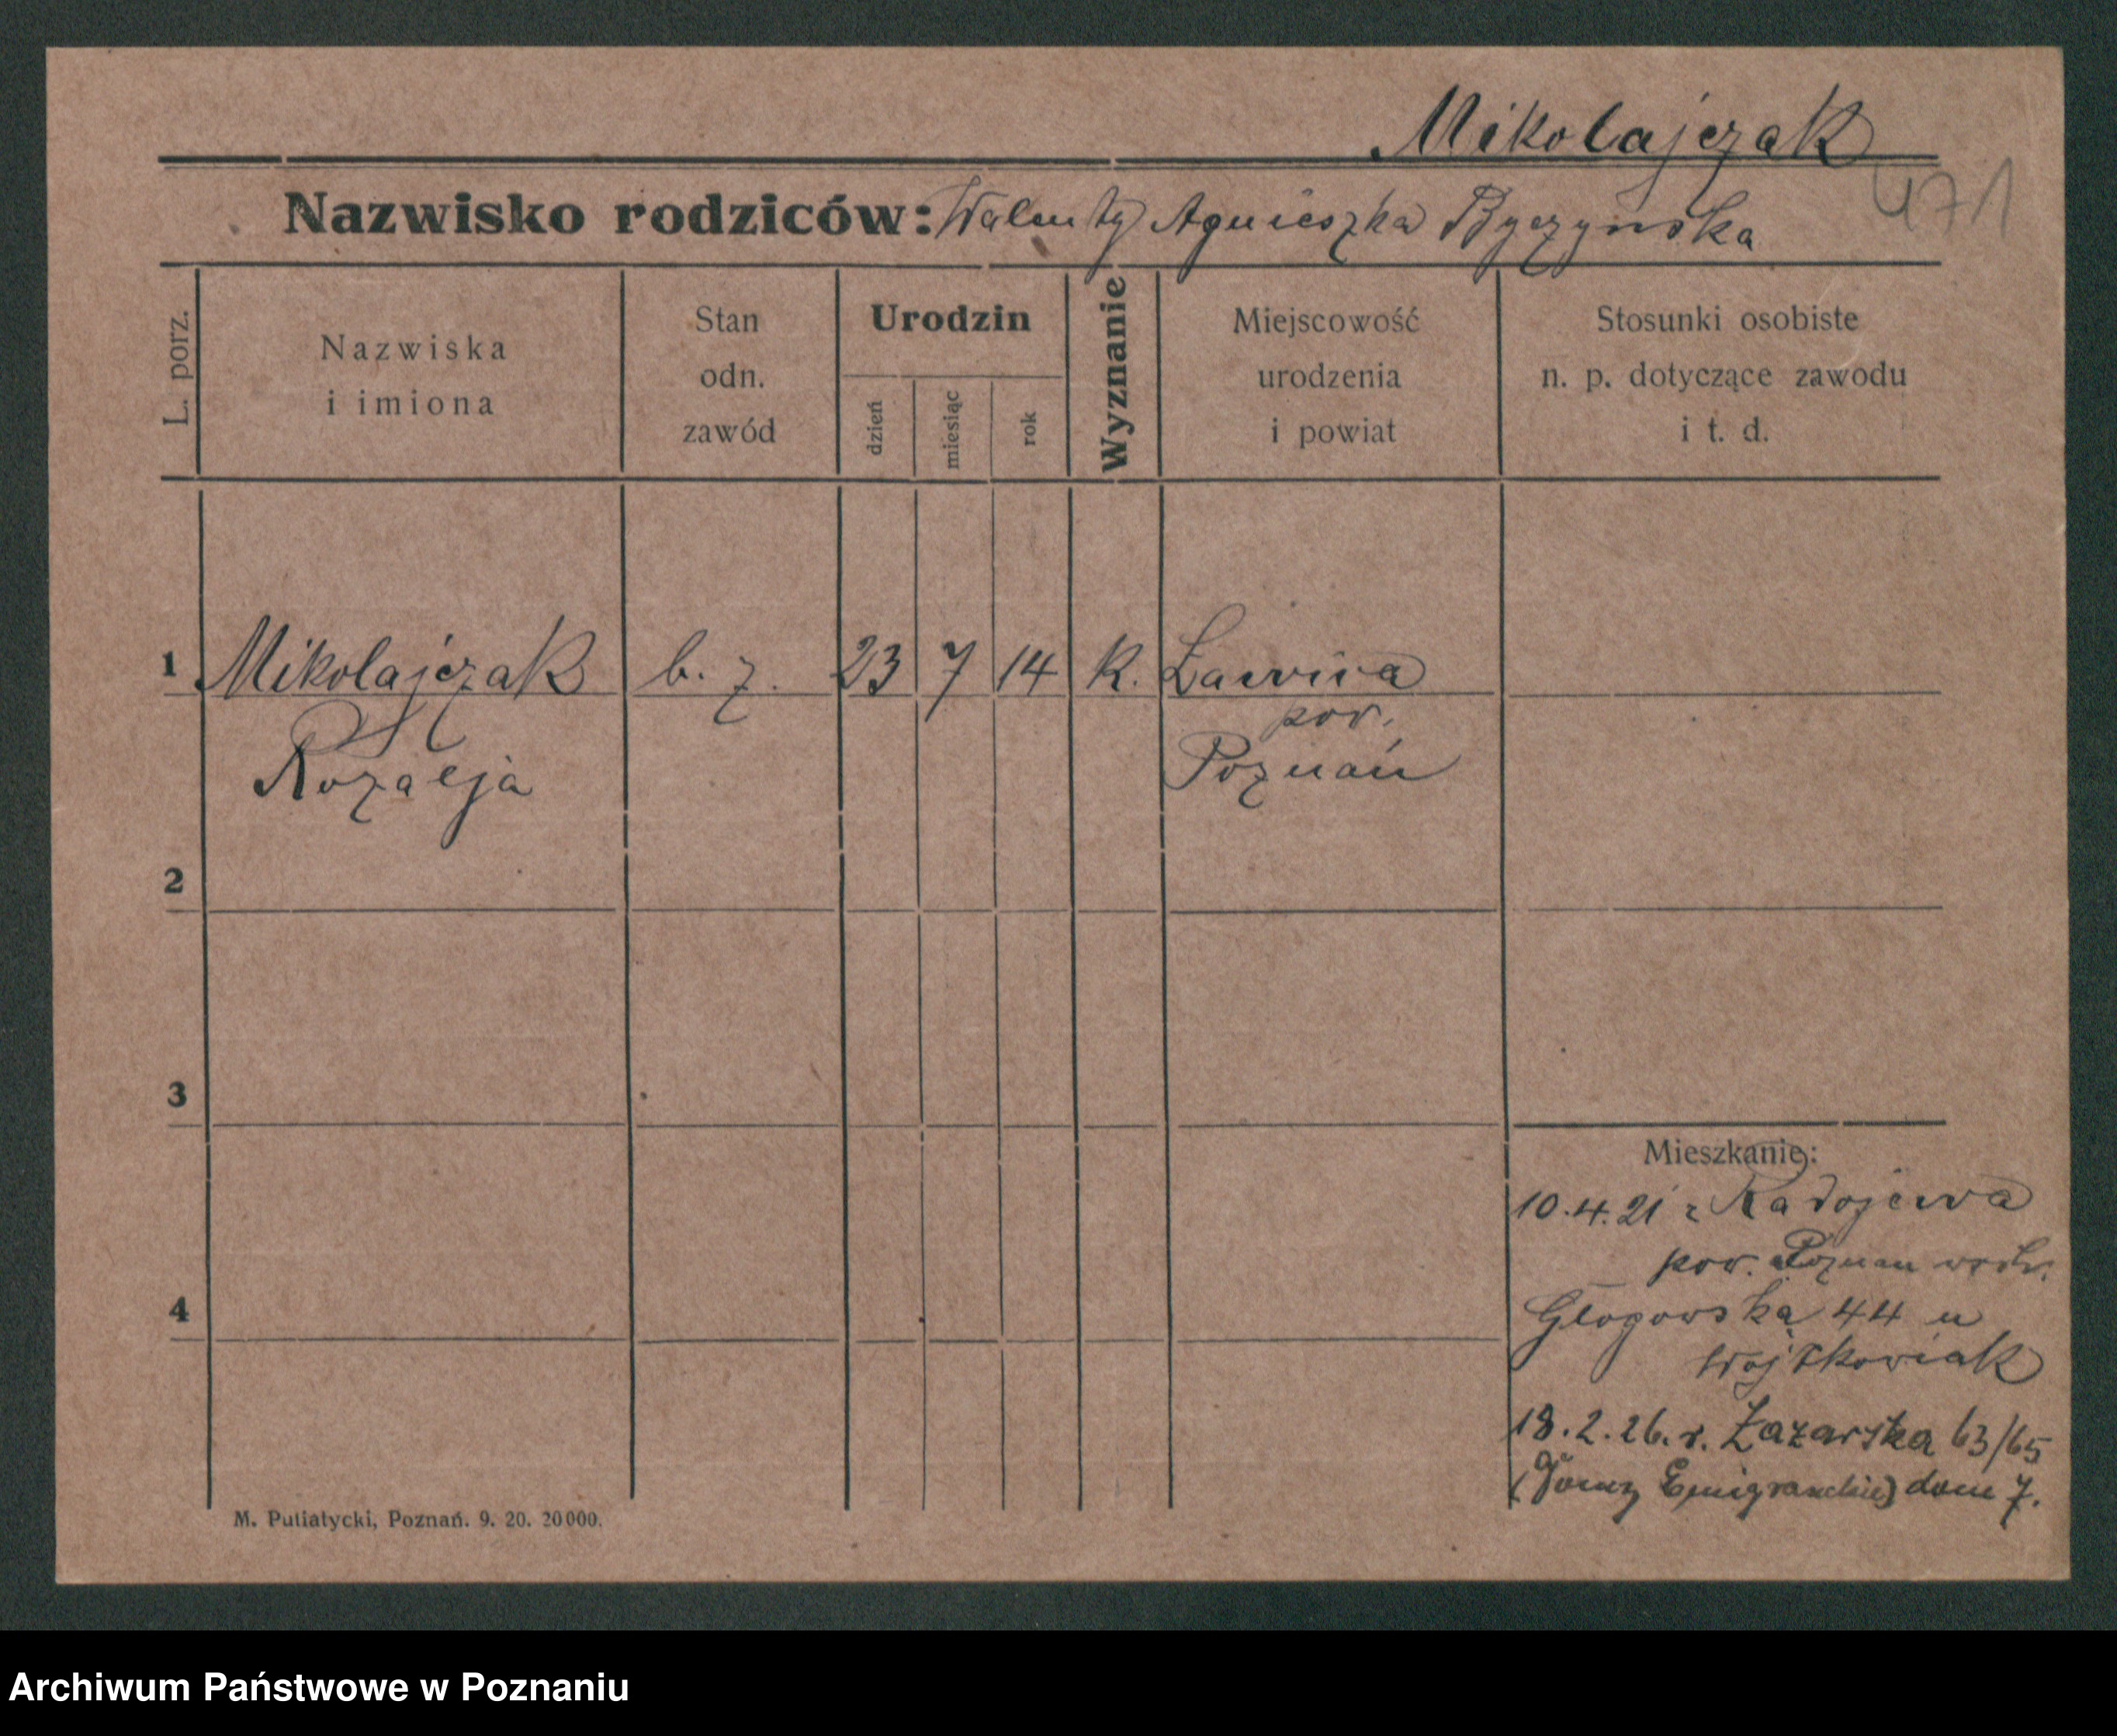 Mikolajczak
471
Nazwisko rodziców: Walenty Agnieszka Byczyńska
L. porz.
Nazwiska
i imiona
Stan
odn.
zawód
Urodzin
dzień
miesiąc
rok
Wyznanie
Miejscowość
urodzenia
i powiat
Stosunki osobiste
n. p. dotyczące zawodu
i t. d.
1 Mikolajczak b. z. 23 7 14 K. Ławica
pow.
Rozalja Poznań
2
3
4
Mieszkanie:
10.4.21 z Radojewa
pow. Poznan wsch.
Głogowska 44 u
Wojtkowiak
18.2.26. r. Łazarska 63/65
(Domy Emigranckie) dom 7.
M. Putiatycki, Poznań. 9. 20. 20000.
Archiwum Państwowe w Poznaniu